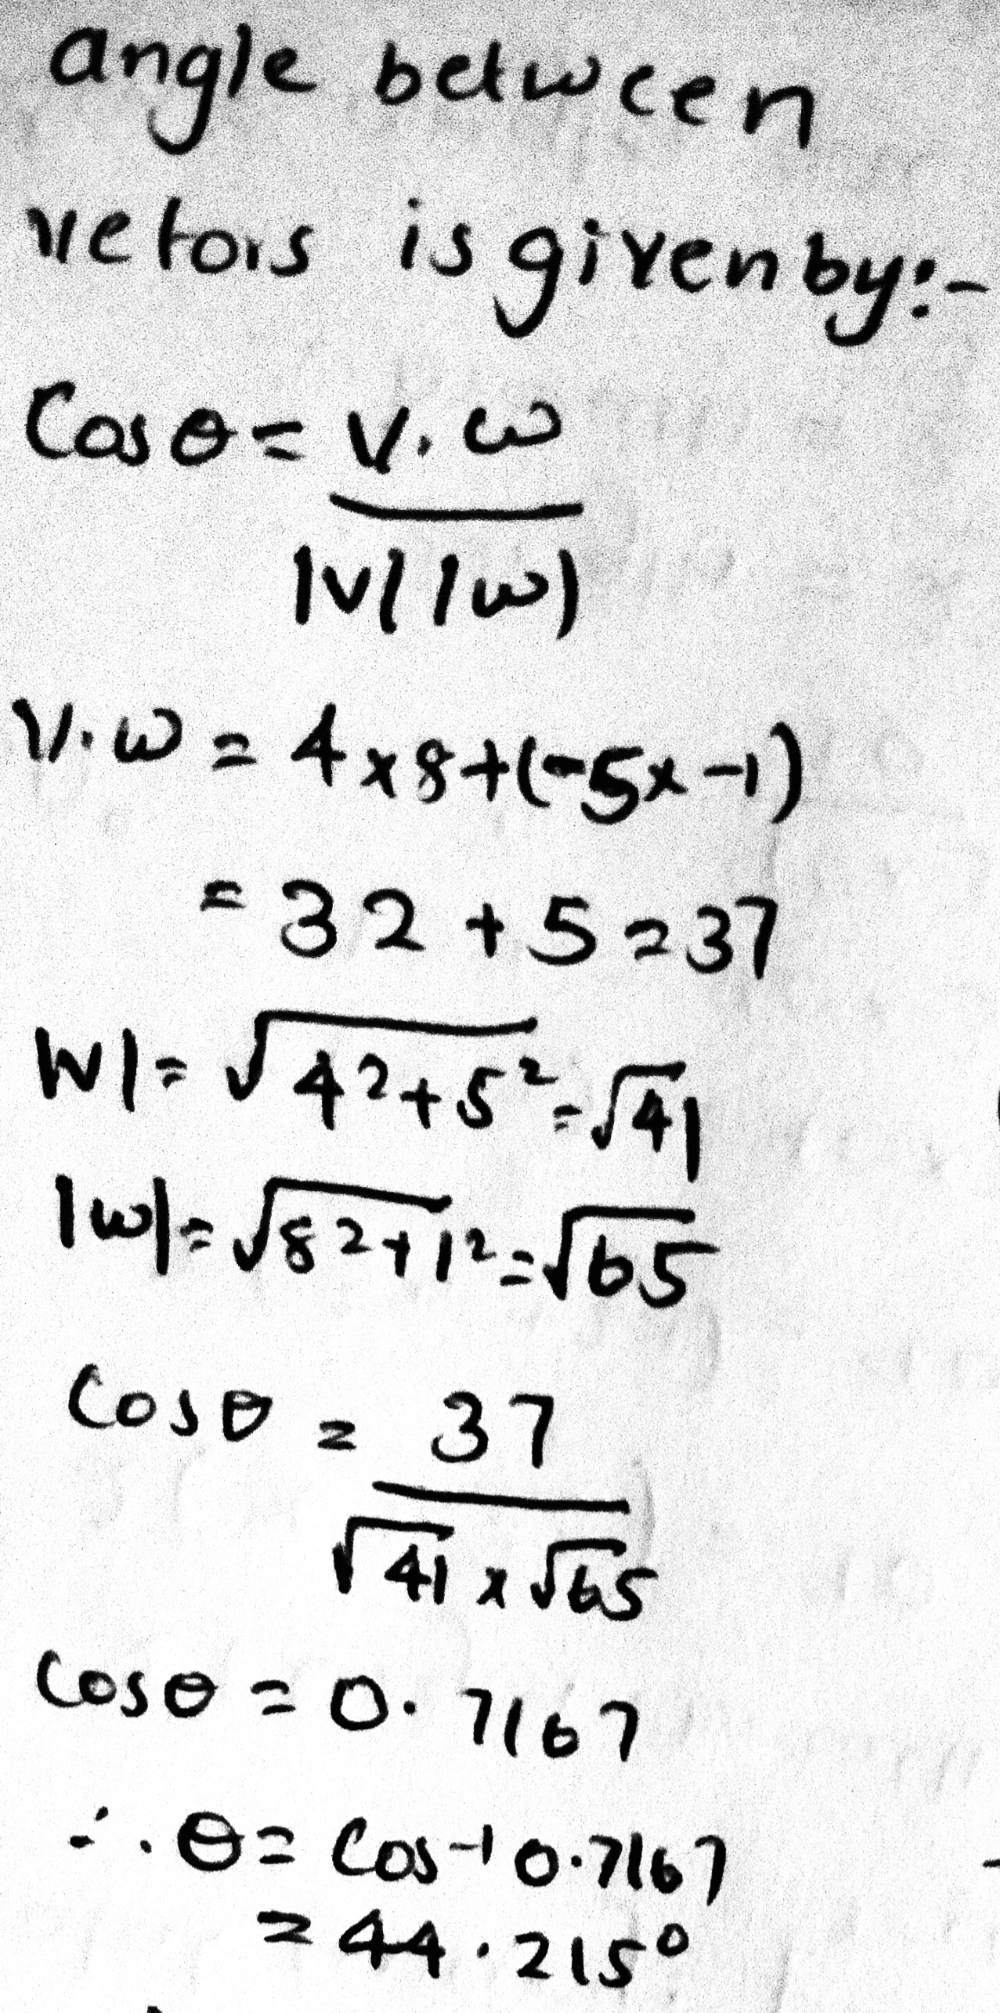 angle between
vetors is given by:-
Cosθ = v. w
|v| |w|
v.w = 4x8+(-5x-1)
= 32 + 5 = 37
|v| = √4²+5² = √41
|w| = √8²+1² = √65
Cosθ = 37
√41 x √65
Cosθ = 0.7167
∴ θ = Cos⁻¹ 0.7167
= 44.215°